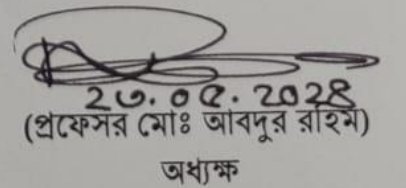 ২৩.০৫.২০২৪
(প্রফেসর মোঃ আবদুর রহিম)
অধ্যক্ষ